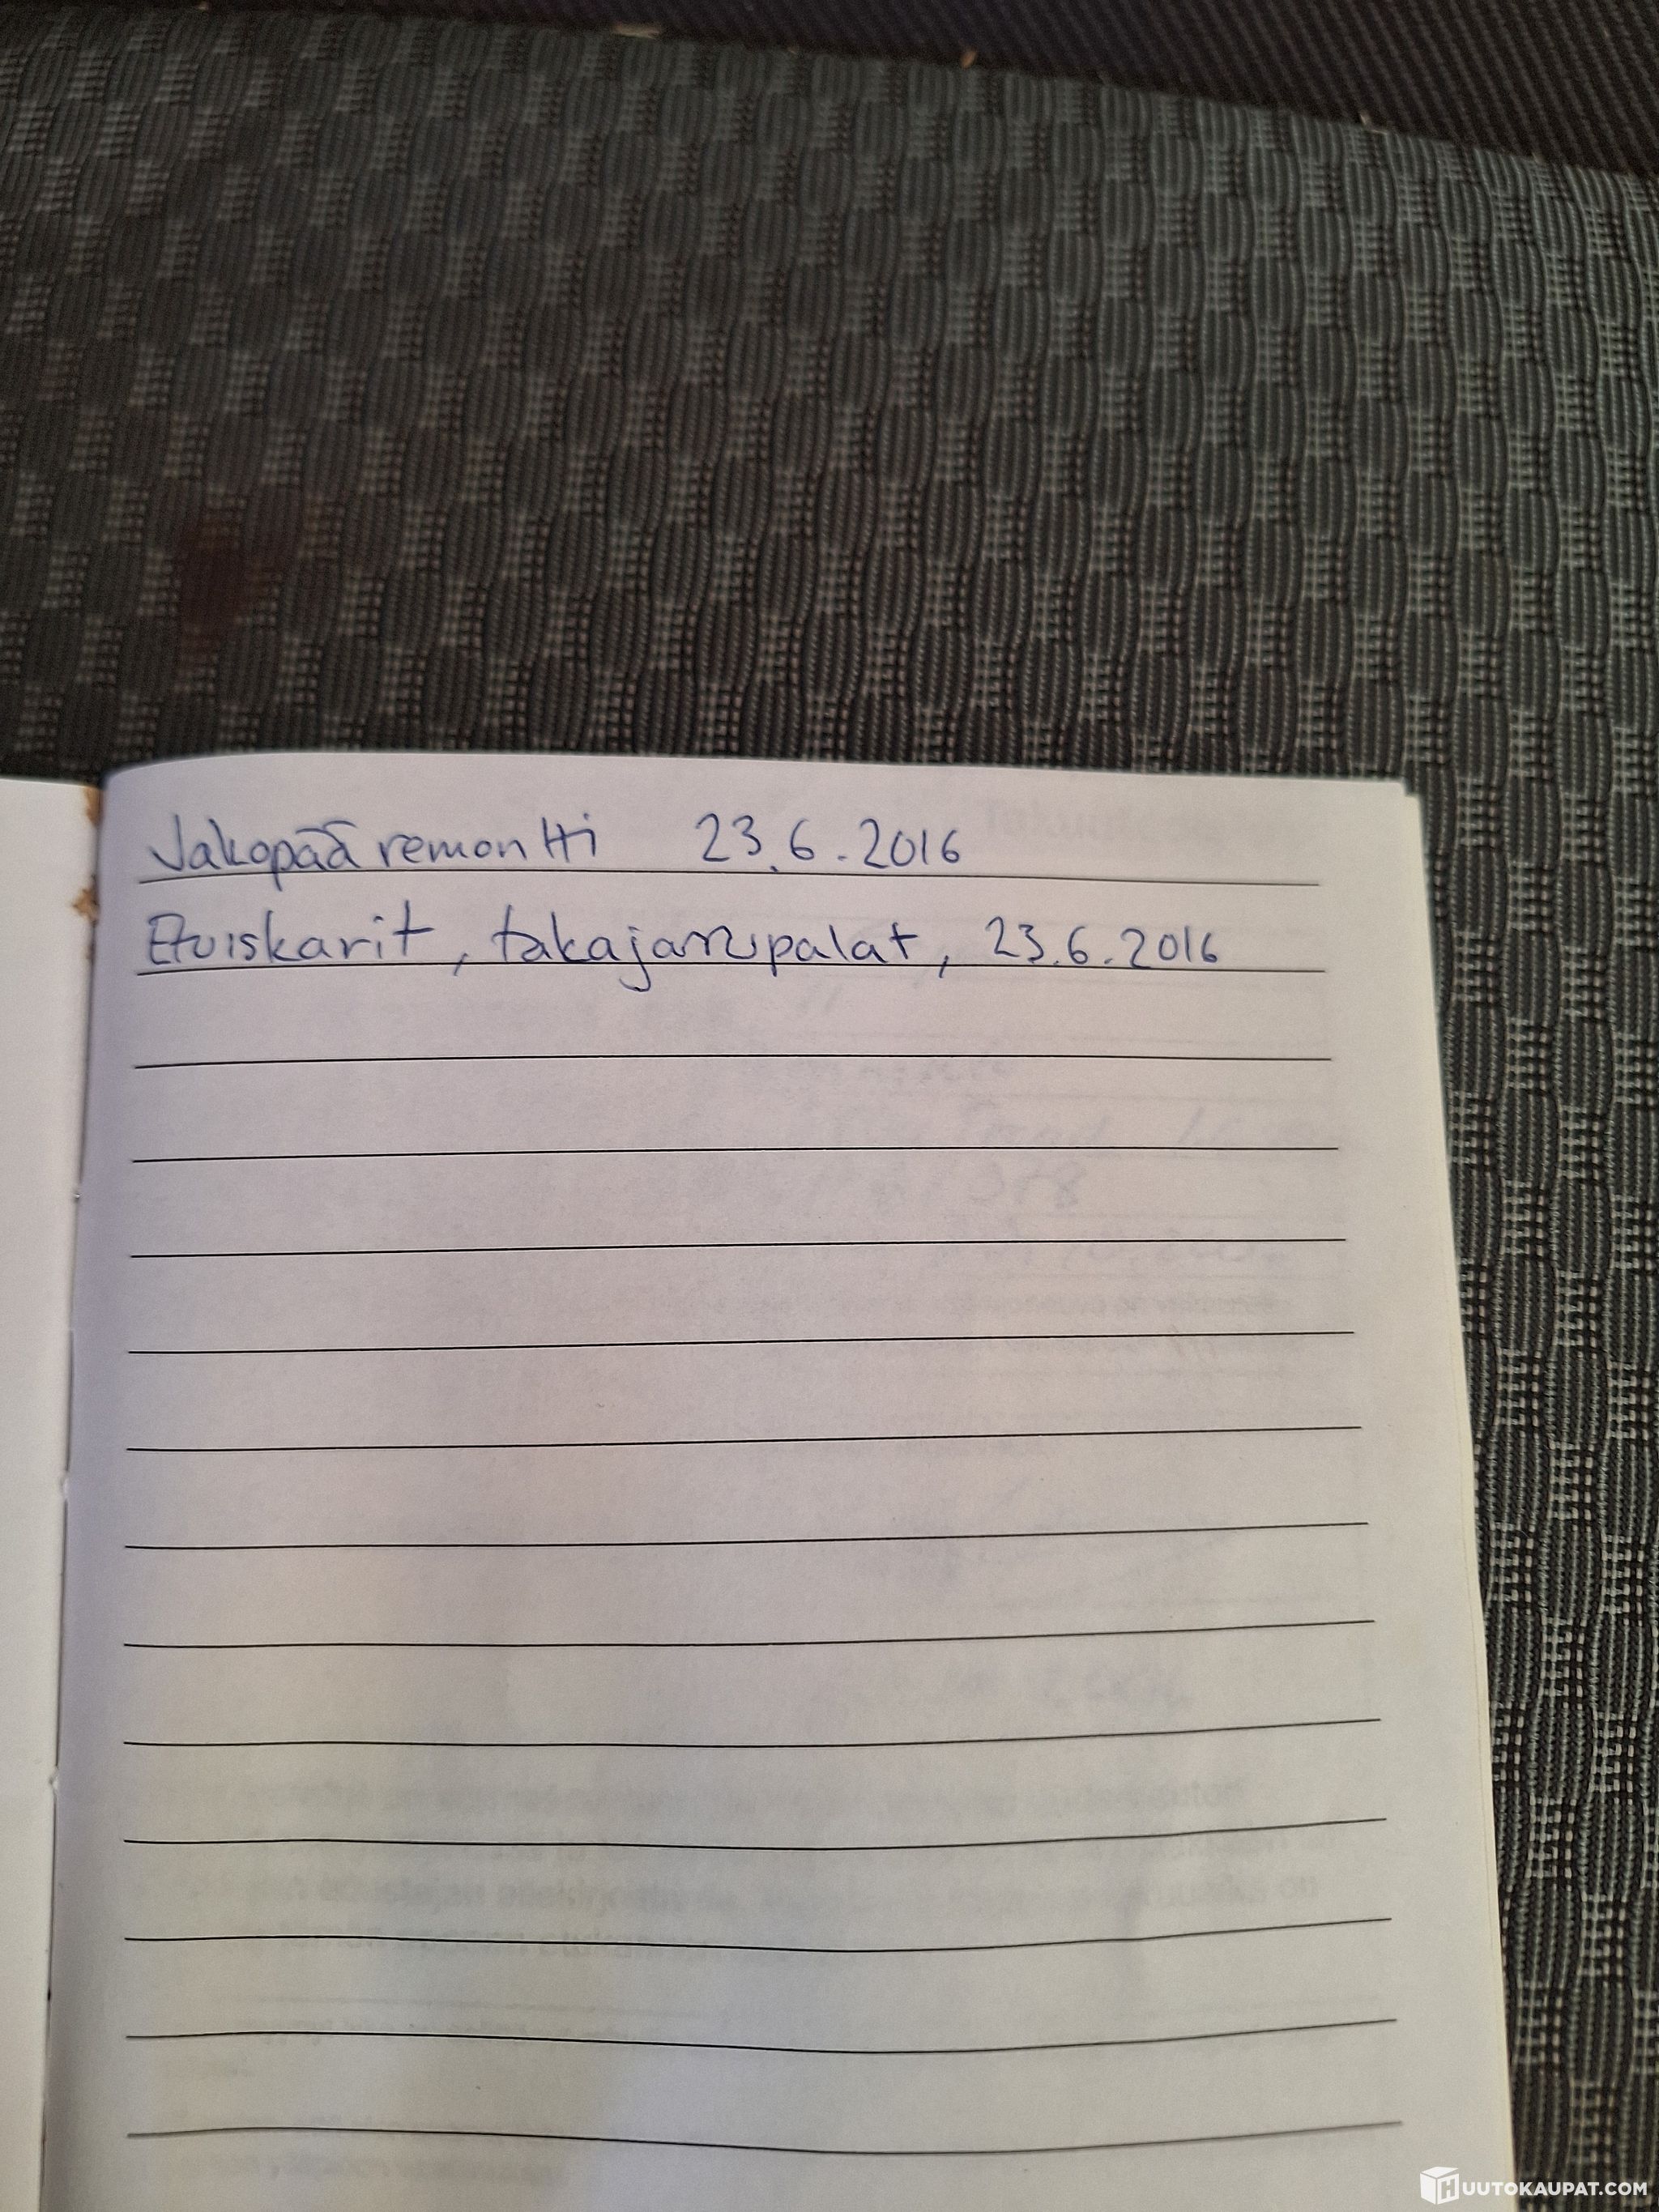 Jakopää remontti 23.6.2016
Etuiskarit, takajarrupalat, 23.6.2016
HUUTOKAUPAT.COM